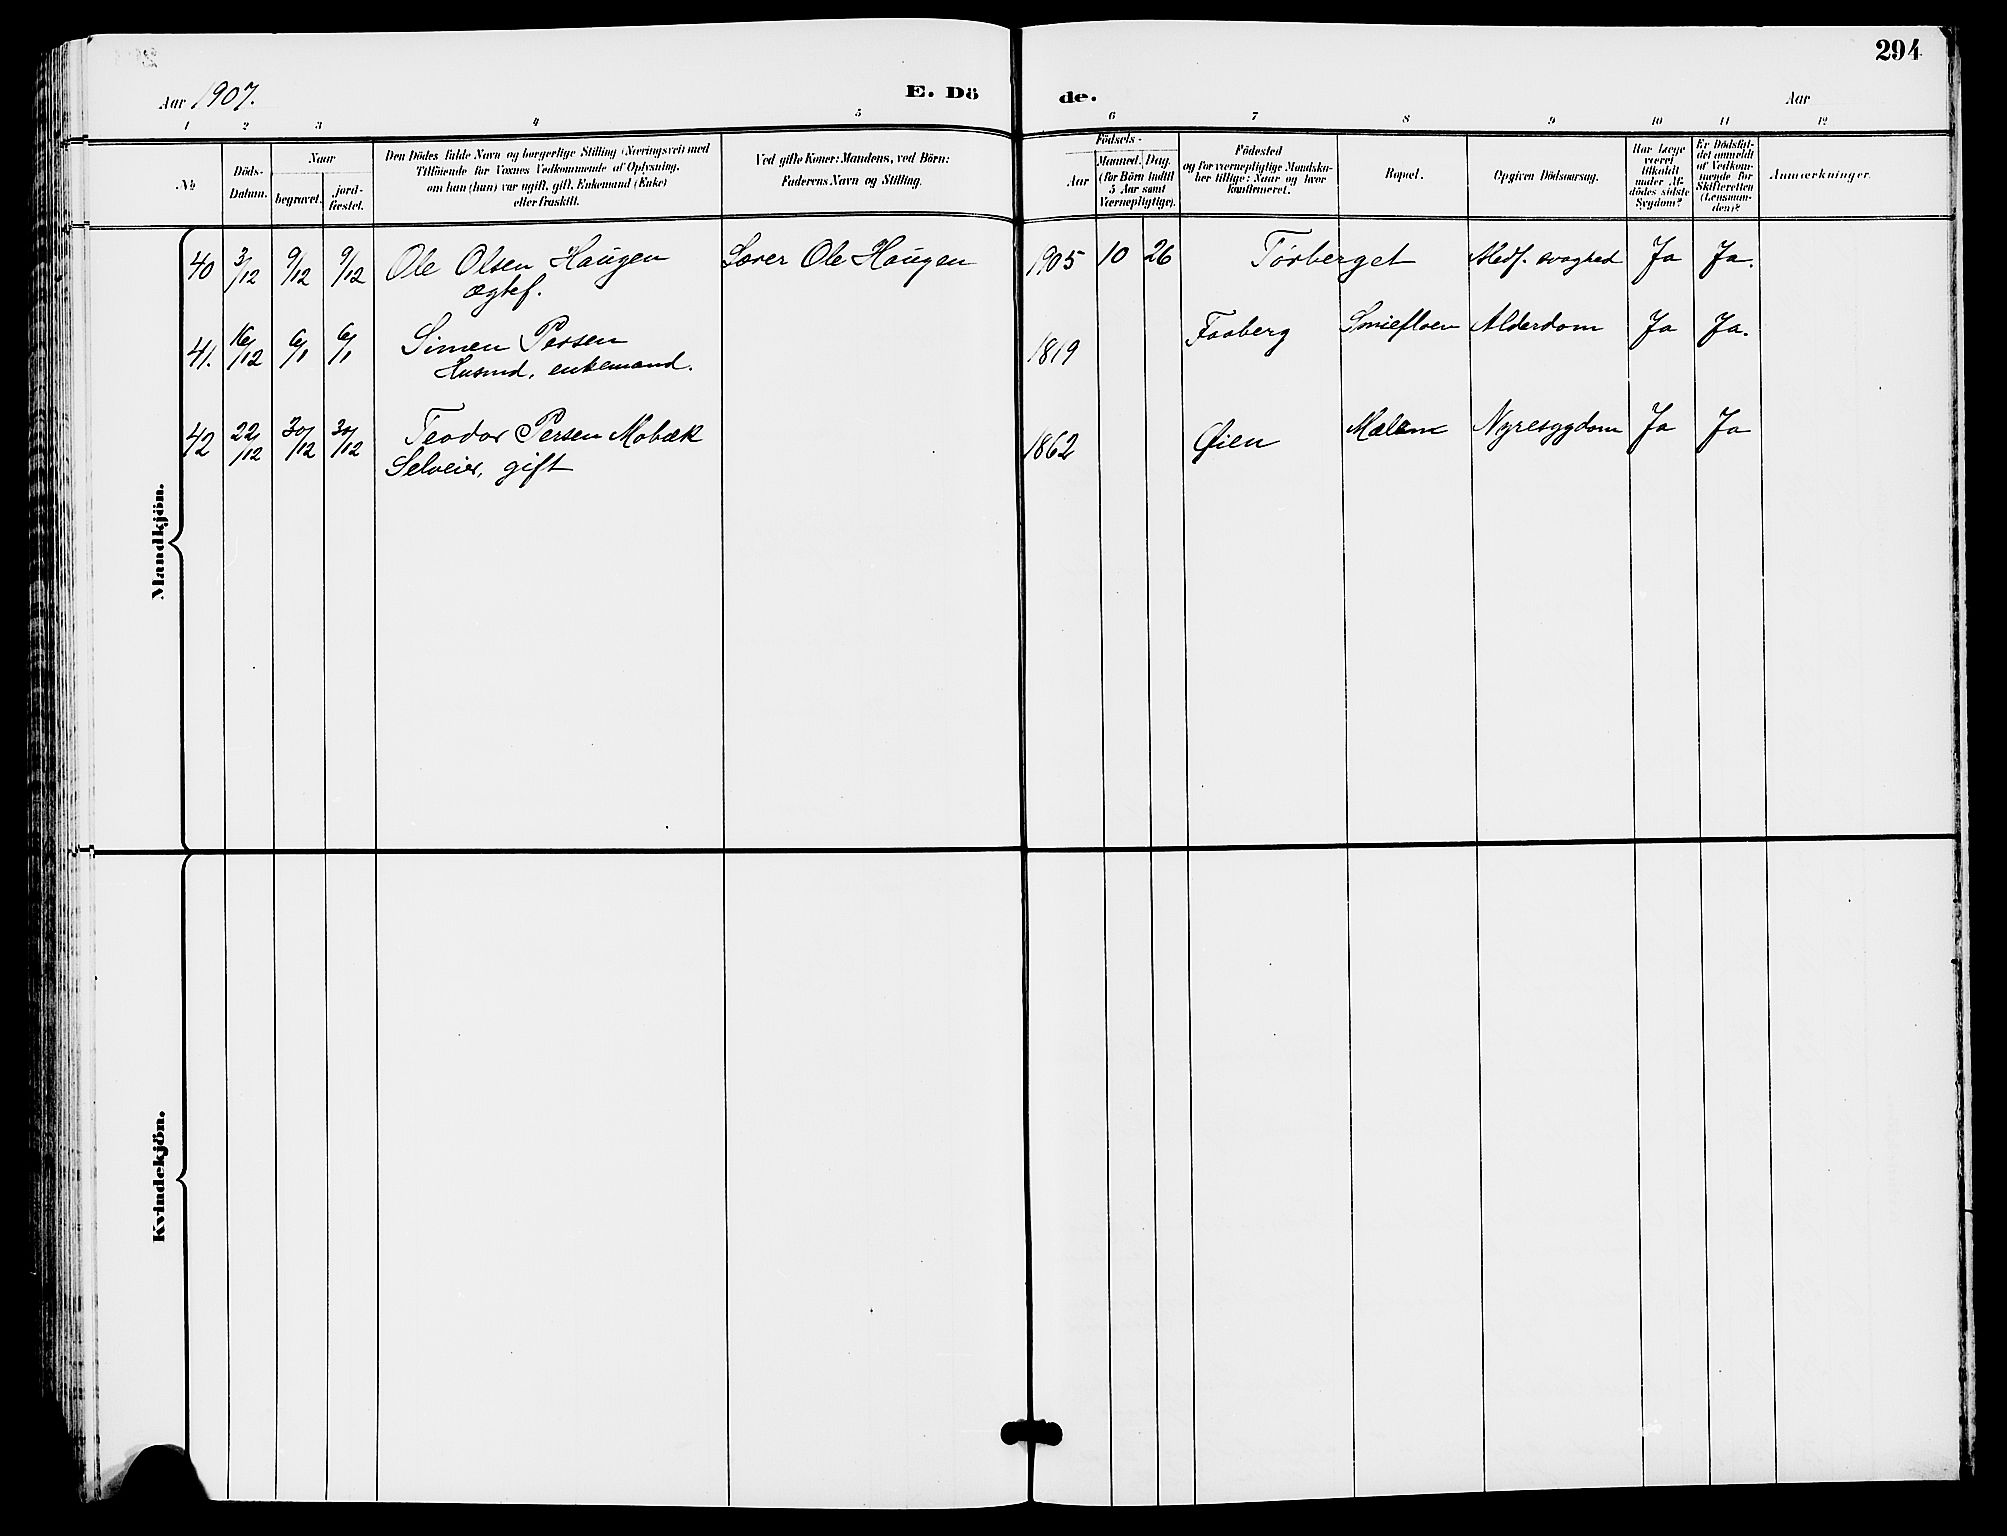 294
Aar 1907.
E. Döde.
Aar
1 2 3 4 5 6 7 8 9 10 11 12
№
Döds-Datum.
Naar
begravet.
jord-fæstet.
Den Dödes fulde Navn og borgerlige Stilling (Næringsvei) med
Tilföiende for Voxnes Vedkommende af Oplysning,
om han (hun) var ugift, gift, Enkemand (Enke)
eller fraskilt.
Ved gifte Koner: Mandens, ved Börn:
Faderens Navn og Stilling.
Födsels-
Aar
Maaned. Dag.
(for Börn indtil
5 Aar samt
Værnepligtige).
Födested
og for værnepligtige Mandska-
ber tillige: Naar og hvor
konfirmeret.
Bopæl.
Opgiven Dödsaarsag.
Har Læge
været
tilkaldt
under Af-
dödes sidste
Sygdom?
Er Dödsfal-
det anmeldt
af Vedkom-
mende for
Skifteretten
(Lensman-
den)?
Anmærkninger.
Mandkjön.
40 3/12 9/12 9/12 Ole Olsen Haugen Lærer Ole Haugen 1905 10 26 Törberget Medf. svaghed Ja Ja.
ægtef.
41. 16/12 6/1 6/1 Simen Persen 1819 Faaberg Smiefloen Alderdom Ja Ja.
Husmd, enkemand.
42 22/12 30/12 30/12 Teodor Persen Mobæk 1862 Øien Nyresygdom Ja Ja
Selveier, gift
Kvindekjön.